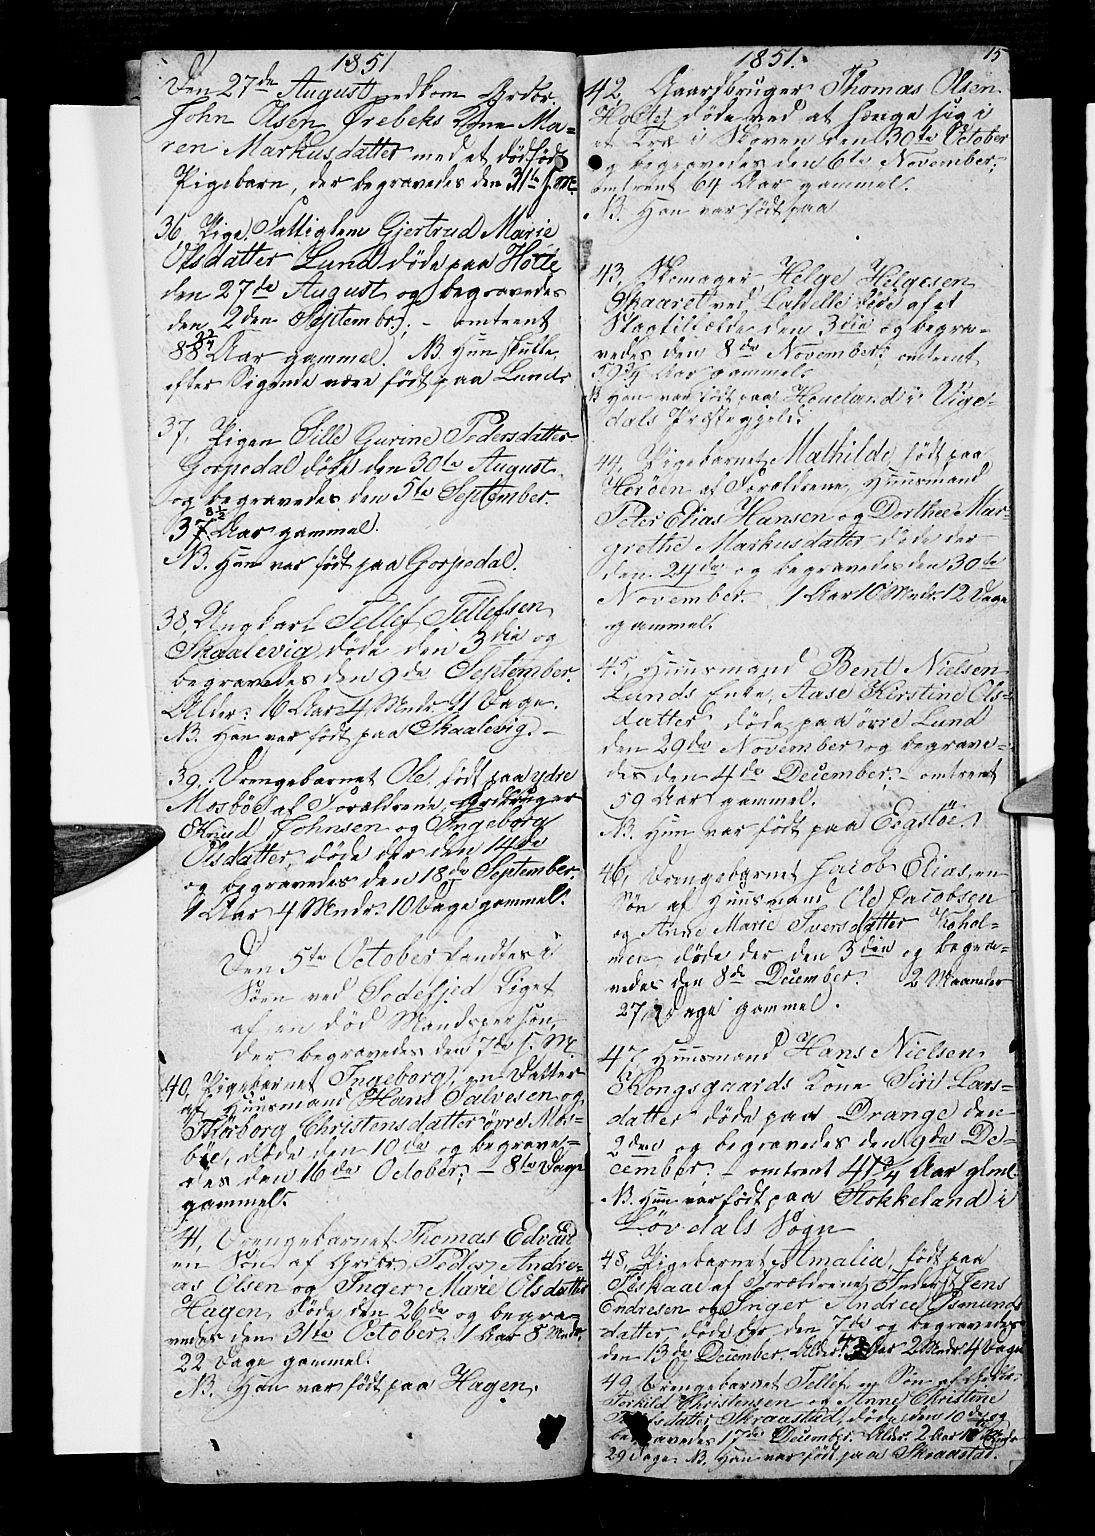 1851
Den 27de August nedkom Grdbr.
John Olsen Ørebeks Kone Ma-
ren Markusdatter med et dødfødt
Pigebarn, der begravedes den 31te s. M.
36, Pige, Fattiglem Gjertrud Marie
Olsdatter Lund døde paa Holte
den 27de August og begravedes
den 2den September; - omtrent
88 3/4 Aar gammel. NB. Hun skulle
efter Sigende være født paa Lund.
37, Pigen Sille Gurine Pedersdatter
Gorpedal døde den 30te August
og begravedes den 5te September.
37 8 1/2 Aar gammel.
NB. Hun var født paa Gorpedal.
38, Ungkarl Tellef Tellefsen
Skaalevig, døde den 3die og
begravedes den 9de September.
Alder: 16 Aar 4 Mndr 11 Dage.
NB. Han var født paa Skaalevig. -
39, Drengebarnet Ole, født paa ydre
Mosbøe af Forældrene, Grdbruger
Knud Johnsen og Ingeborg
Olsdatter, døde der den 14de
og begravedes den 18de September.
1 Aar 4 Mndr. 10 Dage gammel.
Den 5te October fandtes i
Søen ved Sodefjed Liget
af en død Mandsperson,
der begravedes den 7de s. M.
40, Pigebarnet Ingeborg, en Datter
af Huusmand Hans Salvesen og
Thorborg Christensdatter øvre Mos-
bøe, døde den 10de og begrave-
des den 16de October; - 8te Dage
gammel.
41, Drengebarnet Thomas Edvard
en Søn af Grdbr. Peder Andre-
as Olsen og Inger Marie Olsdatter
Hagen, døde den 26de og begra-
vedes den 31te October. 1 Aar 8 Mndr,
22 Dage gammel.
NB. Han var født paa Hagen.
1851.
15
42, Gaardbruger Thomas Olsen
Holte døde ved at hænge sig i
et Træ i Skoven den 30te October
og begravedes den 6te November;
omtrent 64 Aar gammel.
NB. Han var født paa
43, Skomager Helge Helgesen
Skaaret ved døde af et
Slagtilfælde den 3die og begra-
vedes den 8de November; omtrent
59 3/4 Aar gammel.
NB Han var født paa Houeland i Vige-
dals Præstegjeld.
44, Pigebarnet Mathilde, født paa
Herøen af Forældrene, Huusmand
Peter Elias Hansen og Dorthea Mar-
grethe Markusdatter døde der
den 24de og begravedes den 30te
November. 1 Aar 10 Mndr. 12 Dage
gammel.
45, Huusmand Bent Nielsen
Lunds Enke, Aase Kerstine Ols-
datter døde paa øvre Lund
den 29de November og begrave-
des den 4de December; - omtrent
59 Aar gammel.
NB. Hun var født paa Eegsløe.
46, Drengebarnet Jacob Elias, en
Søn af Huusmand Ole Jacobsen
og Anne Marie Iversdatter Kohol-
men, døde der den 3die og begra-
vedes den 8de December. 2 Maaneder
27 Dage gammel.
47, Huusmand Hans Nielsen
Kongsgaards Kone Siri Lars-
datter døde paa Drange den
2den og begravedes den 9de De-
cember; - omtrent 41 3/4 Aar glml.
NB. Hun var født paa Stokkeland i
Løvdals Sogn
48, Pigebarnet Amalia, født paa
Fiskaae af Forældrene Jens
Endresen og Inger Andrea Osmunds-
datter, døde der den 7de og begravedes
den 13de December. Alder: Aar 2 Mndr. 4 Dage
49, Drengebarnet Tellef en Søn af
Torkild Christensen og Anne Christine
Skraastad, døde den 10de og
begravedes 17de December. Alder: 2 Aar Mndr
29 Dage. NB. Han var født paa Skraastad.